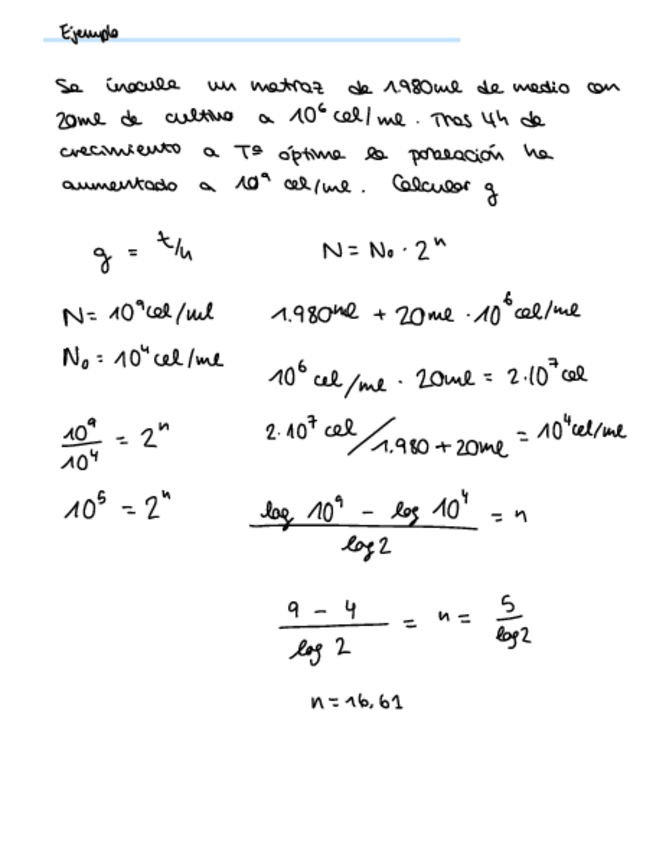 Ejemplo
Se inocula un matraz de 1.980ml de medio con
20ml de cultivo a 10⁶ cel/ml. Tras 4h de
crecimiento a Tª óptima la población ha
aumentado a 10⁹ cel/ml. Calcular g
g = t/n
N = N₀ · 2ⁿ
N = 10⁹ cel/ml
1.980ml + 20ml · 10⁶ cel/ml
N₀ = 10⁴ cel/ml
10⁶ cel/ml · 20ml = 2·10⁷ cel
10⁹/10⁴ = 2ⁿ
2·10⁷ cel / 1.980 + 20ml = 10⁴ cel/ml
10⁵ = 2ⁿ
log 10⁹ - log 10⁴ / log 2 = n
9 - 4 / log 2 = n = 5 / log 2
n = 16,61